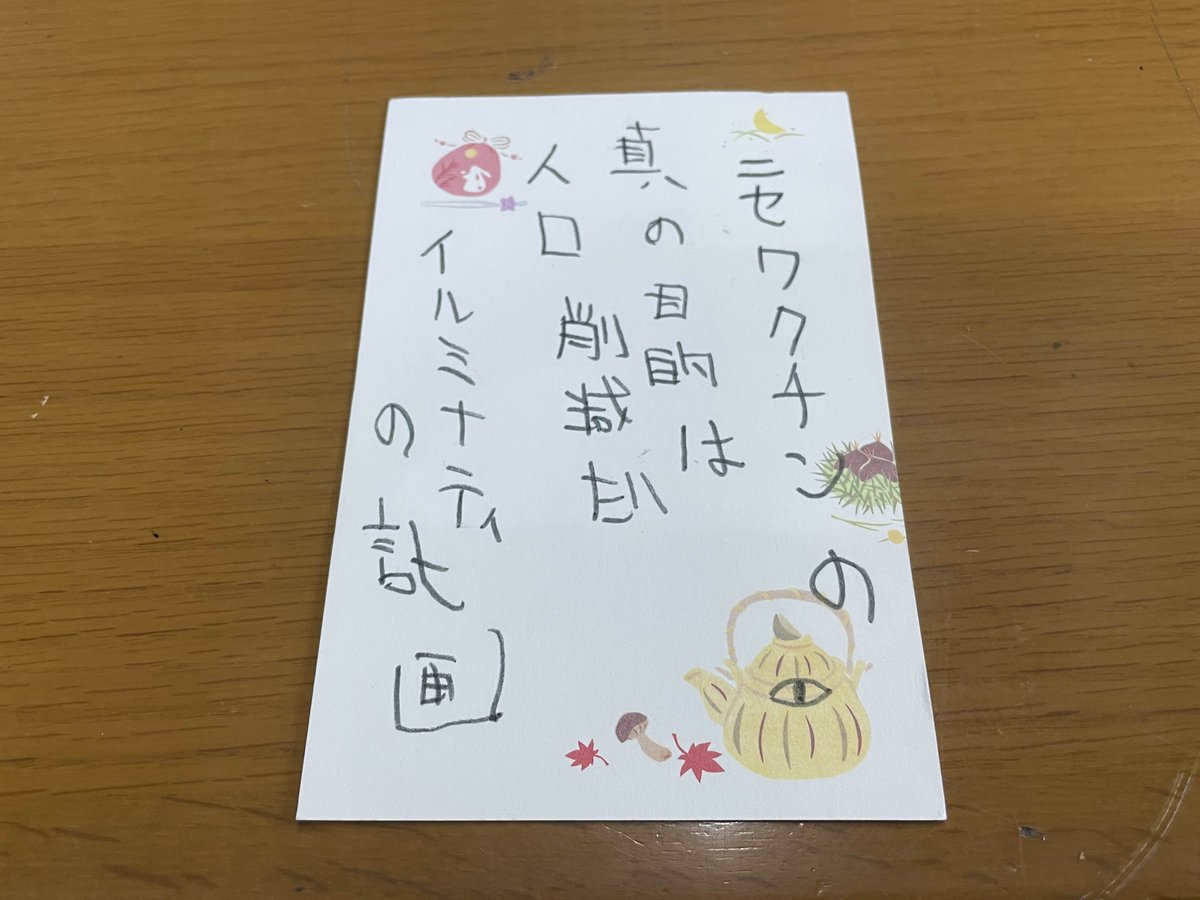 ニセワクチンの
真の目的は
人口削減だ
イルミナティ
の計画